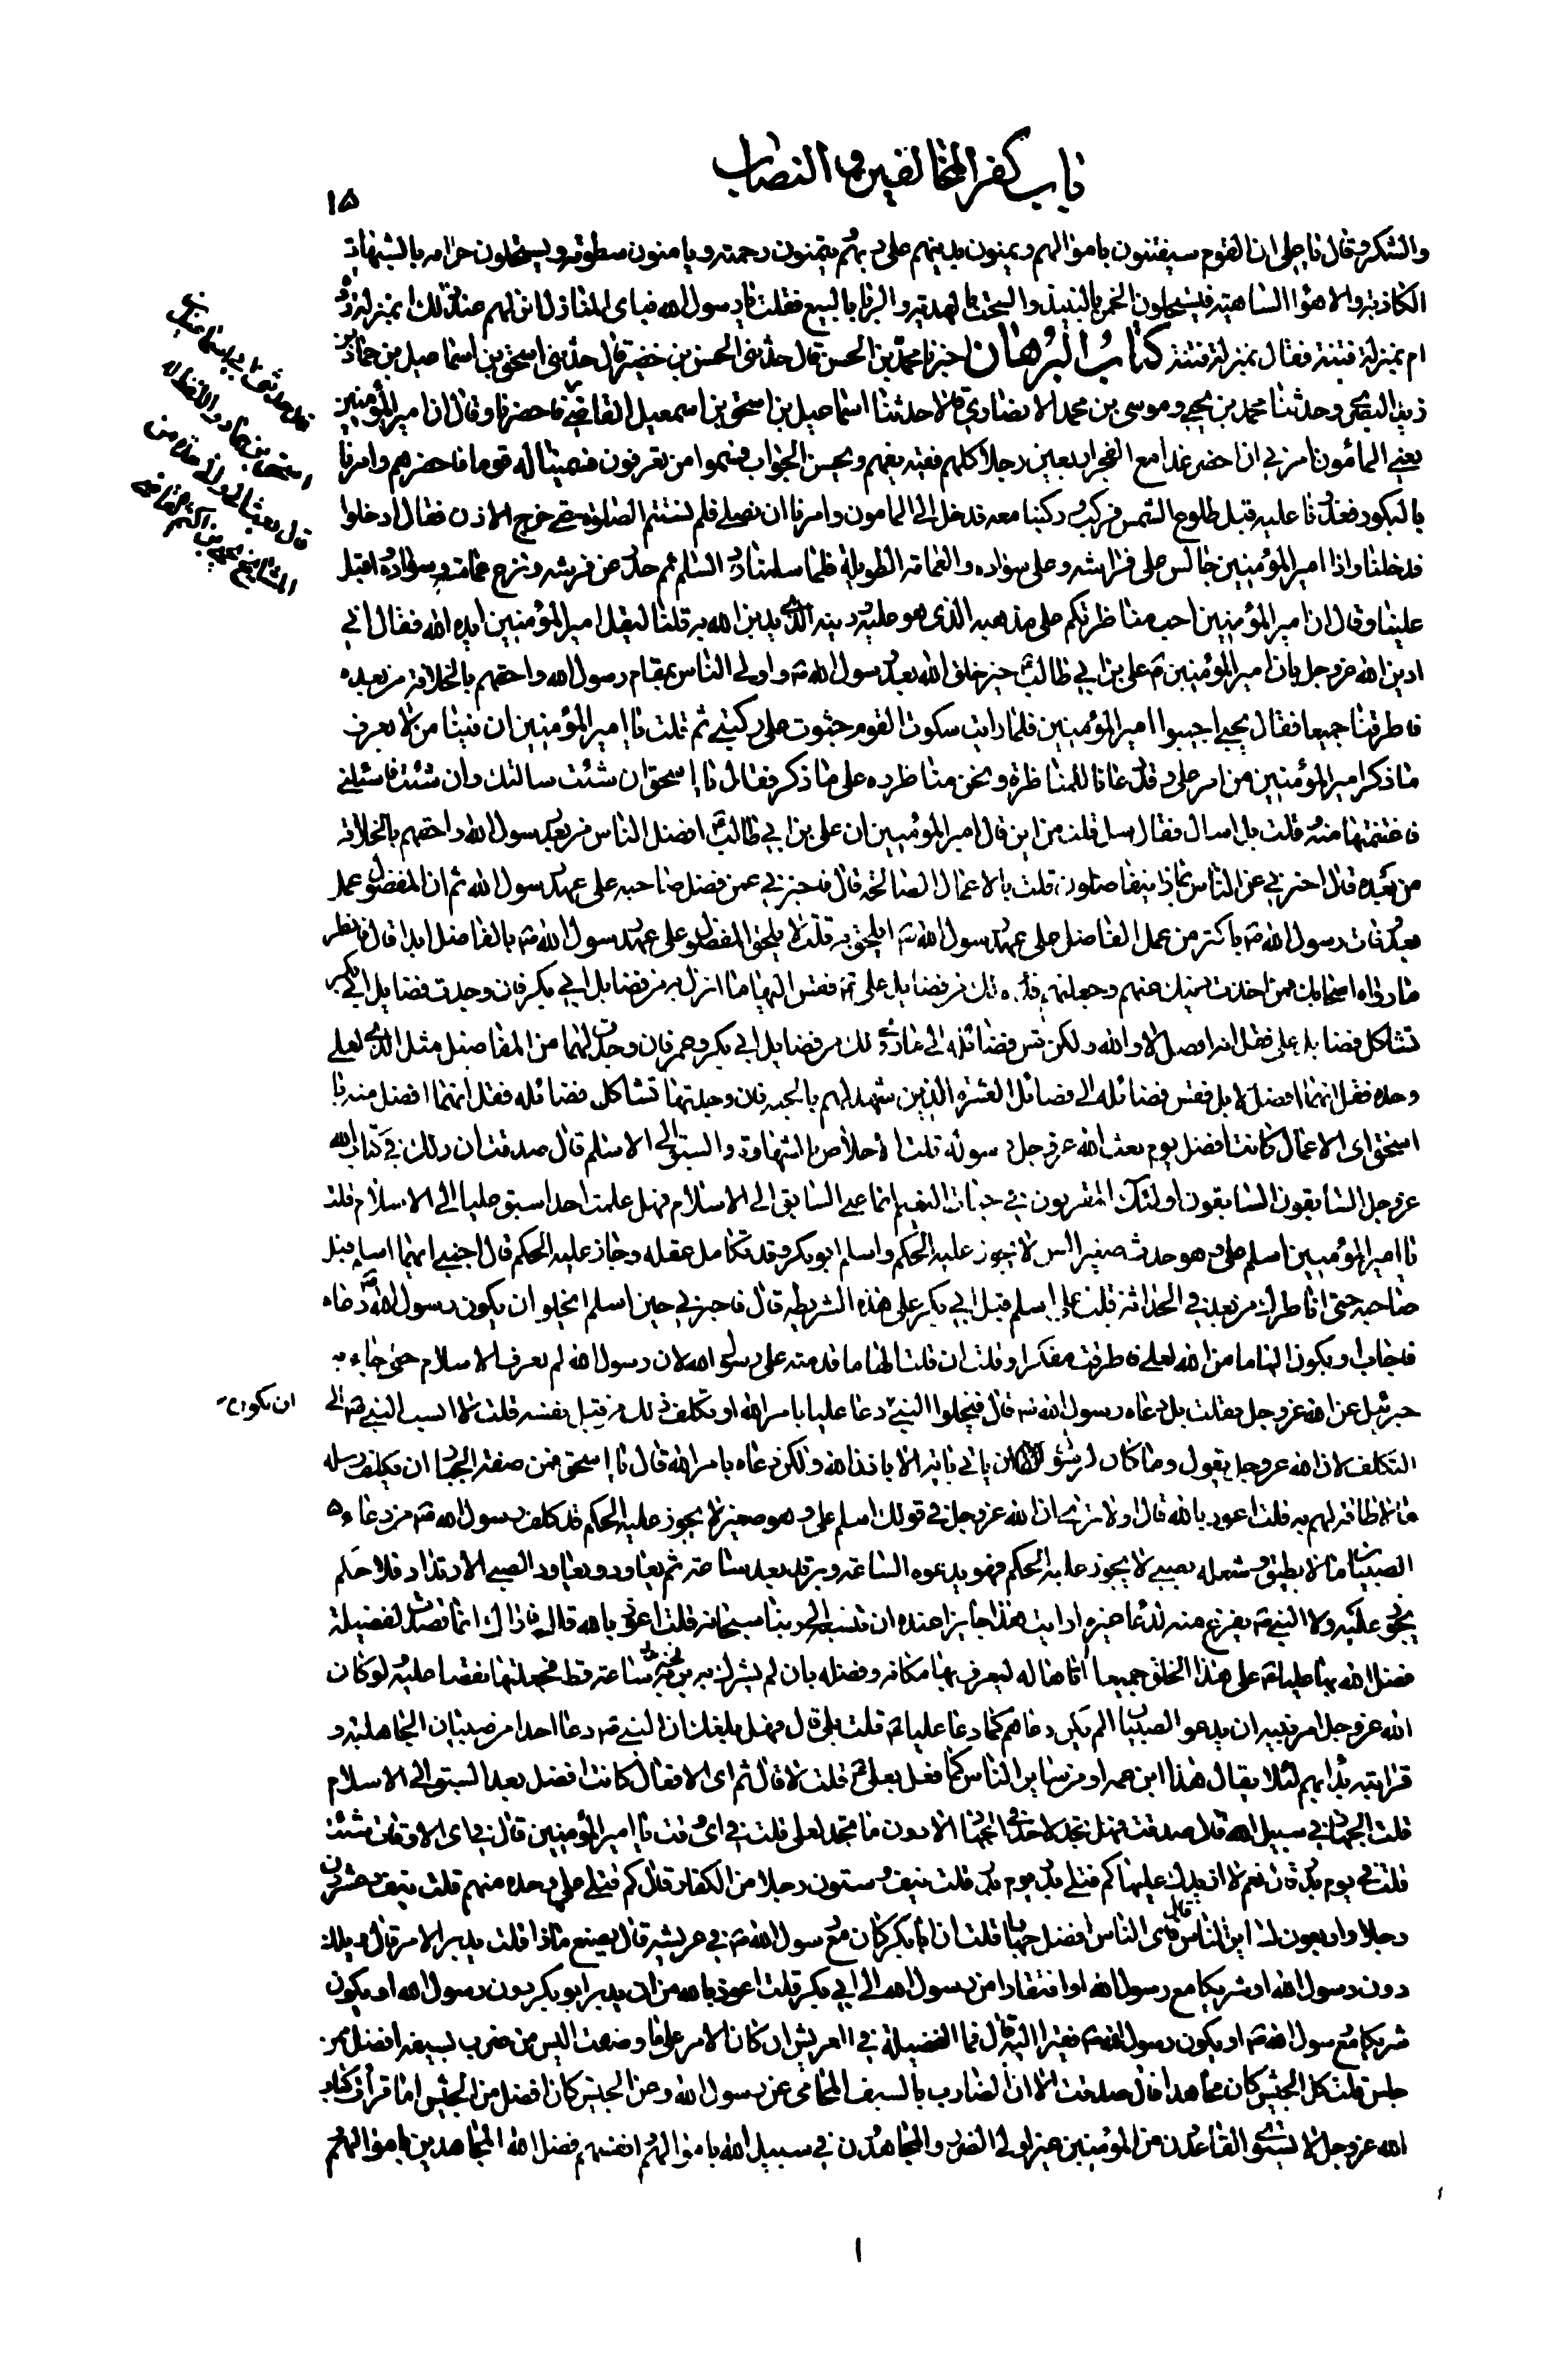 باب كفر المخالفين والنصاب
١٥
والشكر وقال يا علي ان القوم سيفتنون باموالهم ويمنون بدينهم على ربهم ويتمنون رحمته ويامنون سطوته ويستحلون حرامه بالشبهات
الكاذبة والاهواء الساهية فيستحلون الخمر بالنبيذ والسحت بالهدية والربا بالبيع فقلت يا رسول الله فباى المنازل انزلهم عند ذلك بمنزلة ردة
ام بمنزلة فتنة فقال بمنزلة فتنة كتاب البرهان اخبرنا محمد بن الحسن قال حدثنى الحسن بن خضر قال حدثنى اسحق بن اسماعيل بن حماد بن
زيد البصرى وحدثنا محمد بن يحيى وموسى بن محمد الانصارى قالا حدثنا اسماعيل بن اسحق بن اسمعيل القاضى فاحضرنا وقال ان امير المؤمنين
يعنى المأمون امرنى ان احضر غدا مع الفجر اربعين رجلا كلهم فقيه يفهم ويحسن الجواب فسموا من تعرفون فسمينا له قوما فاحضرهم وامرنا
بالبكور فغدونا عليه قبل طلوع الشمس فركب وركبنا معه فدخل الى المامون وامرنا ان نصلى فلم نستتم الصلوة حتى خرج الاذن فقال ادخلوا
فدخلنا واذا امير المؤمنين جالس على فراشه وعلى سواده والعمامة الطويلة فلما سلمنا رد السلم ثم حدر عن فرشه ونزع عمامته وسواده واقبل
علينا وقال ان امير المؤمنين احب مناظرتكم على مذهبه الذى هو عليه ودينه الذى يدين الله به قلنا ليقل امير المؤمنين ايده الله فقال انى
ادين الله عز وجل بان امير المؤمنين ع على بن ابي طالب خير خلق الله بعد رسول الله ص واولى الناس بمقام رسول الله واحقهم بالخلافة من بعده
فاطرقنا جميعا فقال يحيى اجيبوا امير المؤمنين فلما رايت سكوت القوم جثوت على ركبتى ثم قلت يا امير المؤمنين ان فينا من لا يعرف
ما ذكر امير المؤمنين من امر على وقد دعانا للمناظرة ونحن مناظروه على ما ذكر فقال يا اسحق ان شئت سالتك وان شئت فاسئلنى
فاغتنمتها منه قلت بل اسال فقال سل قلت من اين قال امير المؤمنين ان على بن ابي طالب افضل الناس من بعد رسول الله واحقهم بالخلافة
من بعده قال اخبرنى عن الناس بماذا يتفاضلون قلت بالاعمال الصالحة قال فخبرنى عمن فضل صاحبه على عهد رسول الله ثم ان المفضول عمل
بعد وفات رسول الله ص باكثر من عمل الفاضل على عهد رسول الله ص ايلحق به قلت لا يلحق المفضول على عهد رسول الله ص بالفاضل ابدا قال فانظر
ما رواه اصحابك ممن اخذت دينك عنهم وجعلتهم قدوتك من فضايل على ع فقس اليها ما انزل به من فضايل ابي بكر فان وجدت فضايل ابي بكر
تشاكل فضايل على فقل انه افضل لا والله ولكن قس فضائله الى ما روى لك من فضايل ابي بكر وعمر فان وجدت لهما من الفضايل مثل الذى لعلى
وحده فقل انهما افضل لا بل فقس فضائله الى فضائل العشرة الذين شهد لهم بالجنة فان وجدتها تشاكل فضائله فقل انهما افضل منه يا
اسحق اى الاعمال كانت افضل يوم بعث الله عز وجل رسوله قلت الاخلاص بالشهادة والسبق الى الاسلم قال صدقت ان ذلك فى كتاب الله
عز وجل السابقون السابقون اولئك المقربون فى جنات النعيم انما عنى السابق الى الاسلام فهل علمت احدا سبق عليا الى الاسلام قلت
يا امير المؤمنين اسلم على وهو حدث صغير السن لا يجوز عليه الحكم واسلم ابو بكر وقد تكامل عقله وجاز عليه الحكم قال اجنبى ايهما اسلم قبل
صاحبه حتى اناظرك من بعد فى الحداثة قلت على اسلم قبل ابي بكر على هذه الشريطة قال فاخبرنى حين اسلم ايخلو ان يكون رسول الله ص دعاه
فاجاب او يكون الهاما من الله لعلى فاطرقت مفكرا وقلت ان قلت الهاما قدمته على رسول الله لان رسول الله لم يعرف الاسلام حتى جاء به
جبرئيل عن الله عز وجل فقلت بل دعاه رسول الله ص قال فيخلوا النبى دعا عليا بامر الله او تكلف ذلك من قبل نفسه قلت لا انسب النبى ص الى
ان يكون
التكلف لان الله عز وجل يقول وما كان لرسول ان ياتى باية الا باذن الله ولكن دعاه بامر الله قال يا اسحق فمن صفة الجبار ان يكلف رسله
ما لا طاقة لهم به قلت اعوذ بالله قال اولا ترى ان الله عز وجل فى قولك اسلم على وهو صغير لا يجوز عليه الحكم قد كلف رسول الله ص من دعاء
الصبيان ما لا يطيق وشغله بصبى لا يجوز عليه الحكم فهو يدعوه الساعة ويرتد بعد ساعة ثم يعاود ويعاود الصبى الارتداد فلا حكم
يجوز عليه ولا النبى ص يفرغ منه لدعا غيره ارايت هذا جايزا عنده ان تنسبه الى ربنا سبحانه قلت اعوذ بالله قال فاراك انما قصدت لفضيلة
فضل الله بها عليا ع على هذا الخلق جميعا اتاها له ليعرف بها مكانه وفضله بان لم يشرك به ساعة قط فجعلتها نقصا عليه لو كان
الله عز وجل امر نبيه ان يدعو الصبيان الم يكن دعاهم كما دعا عليا ع قلت بلى قال فهل بلغك ان النبى ص دعا احدا من صبيان الجاهلية و
قرابته بدا بهم لئلا يقال هذا ابن عمه او من ساير الناس كما فعل بعلى ع قلت لا قال ثم اى الافعال كانت افضل بعد السبق الى الاسلام
قلت الجهاد فى سبيل الله قال صدقت فهل تجد لاحد فى الجهاد الا دون ما تجد لعلى قلت فى اى وقت يا امير المؤمنين قال فى اى الاوقات شئت
قلت فى يوم بدر قال نعم لا ازيدك عليها كم قتلى بدر يوم بدر قلت نيف وستون رجلا من الكفار قال كم قتلى على وحده منهم قلت نيف وعشرون
رجلا واربعون لسائر الناس قال فاى الناس افضل جهادا قلت ان ابا بكر كان مع رسول الله ص فى عريشه قال يصنع ماذا قلت يدبر الامر قال ويلك
دون رسول الله او شريكا مع رسول الله او افتقارا من رسول الله الى ابي بكر قلت اعوذ بالله من ان يدبر ابو بكر دون رسول الله او يكون
شريكا مع رسول الله ص او يكون رسول الله ص فقيرا اليه قال فما الفضيلة فى العريش ان كان الامر على ما وصفت اليس من ضرب بسيفه افضل ممن
جلس قلت كل الجيش كان مجاهدا قال صدقت الا ان الضارب بالسيف المحامى عن رسول الله وعن الجيش كان افضل من الجيش اما قرأت كتاب
الله عز وجل لا يستوى القاعدون من المؤمنين غير اولى الضرر والمجاهدون فى سبيل الله باموالهم وانفسهم فضل الله المجاهدين باموالهم
١